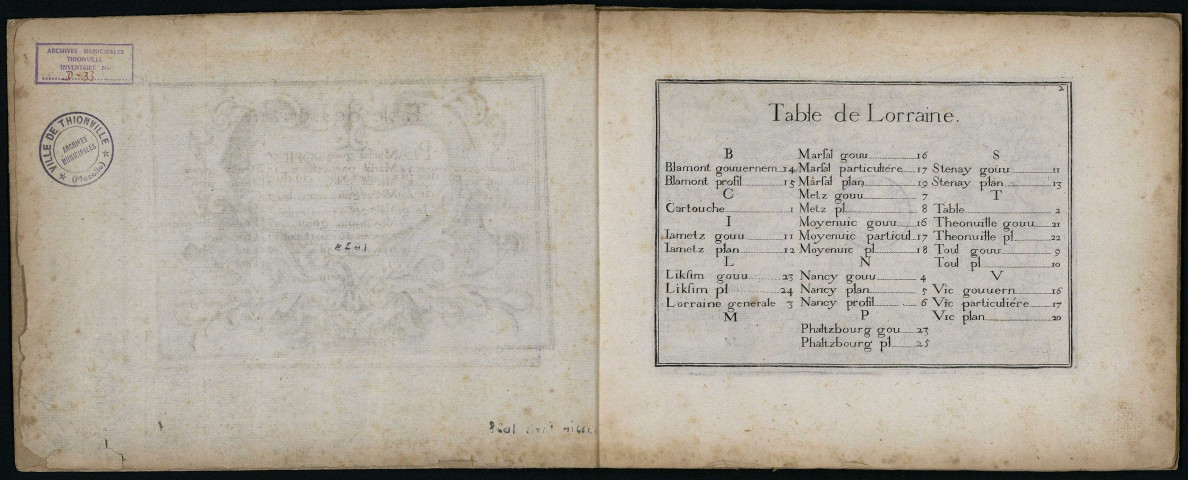 ARCHIVES MUNICIPALES
THIONVILLE
INVENTAIRE
D-33
VILLE DE THIONVILLE
ARCHIVES
MUNICIPALES
(Moselle)
2
Table de Lorraine.
B
Blamont gouuernem 14
Blamont profil 15
C
Cartouche 1
I
Iametz gouu 11
Iametz plan 12
L
Likſim gouu 23
Likſim pl 24
Lorraine generale 3
M
Marſal gouu 16
Marſal particuliére 17
Marſal plan 19
Metz gouu 7
Metz pl 8
Moyenuic gouu 16
Moyenuic particul 17
Moyenuic pl 18
N
Nancy gouu 4
Nancy plan 5
Nancy profil 6
P
Phaltzbourg gou 23
Phaltzbourg pl 25
S
Stenay gouu 11
Stenay plan 13
T
Table 2
Theonuille gouu 21
Theonuille pl 22
Toul gouu 9
Toul pl 10
V
Vic gouuern 16
Vic particuliére 17
Vic plan 20